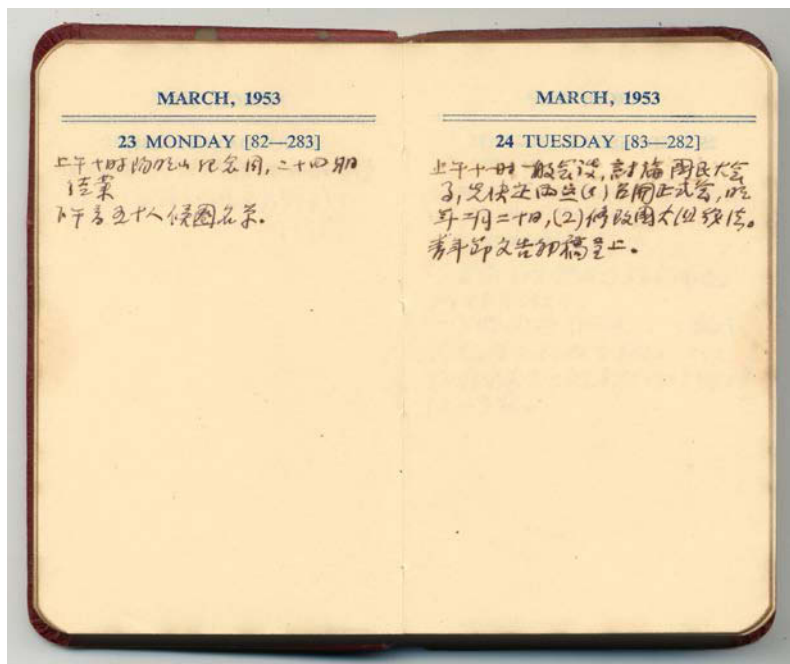 MARCH, 1953
23 MONDAY [82—283]
上午十时阳明山纪念周,二十四期
结业
下午言五十人候圈名单。
MARCH, 1953
24 TUESDAY [83—282]
上午十时一般会谈,討論国民大会
事,先决定两点(1)召開正式会,明
年二月二十日,(2)修改国大组织法。
青年節文告初稿呈上。